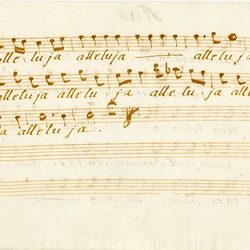 alle-luja alleluja alleluja
alleluja allelu-ja alle-luja alle
ja alleluja.